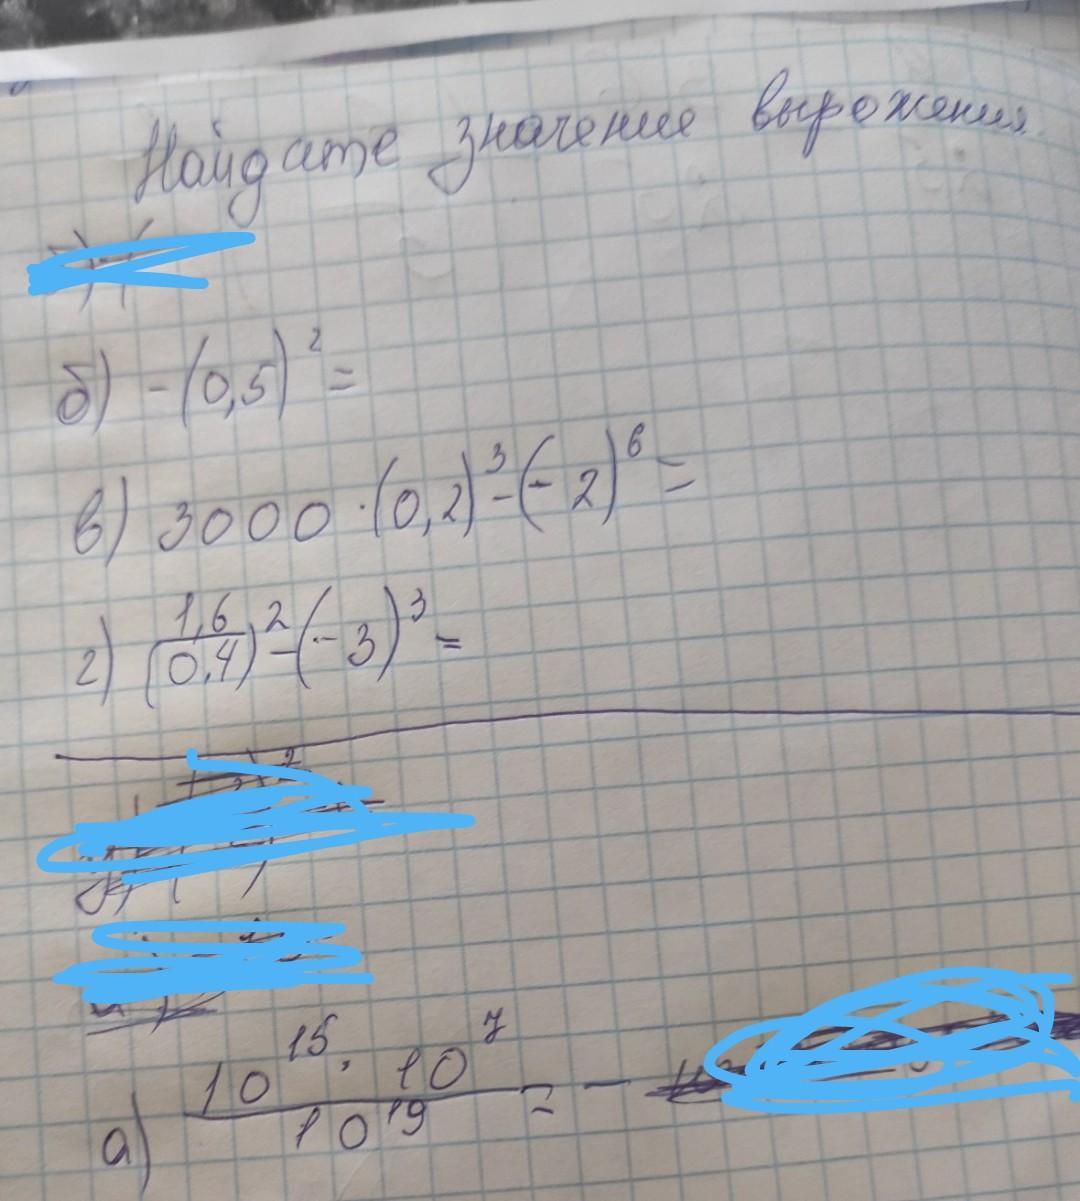 Найдите значение вырожения.
б) -(0,5)² =
в) 3000 · (0,2)³ - (- 2)⁶ =
г) (1,6/0,4)² - (-3)³ =
а) 10¹⁵ · 10⁷ / 10¹⁹ = -